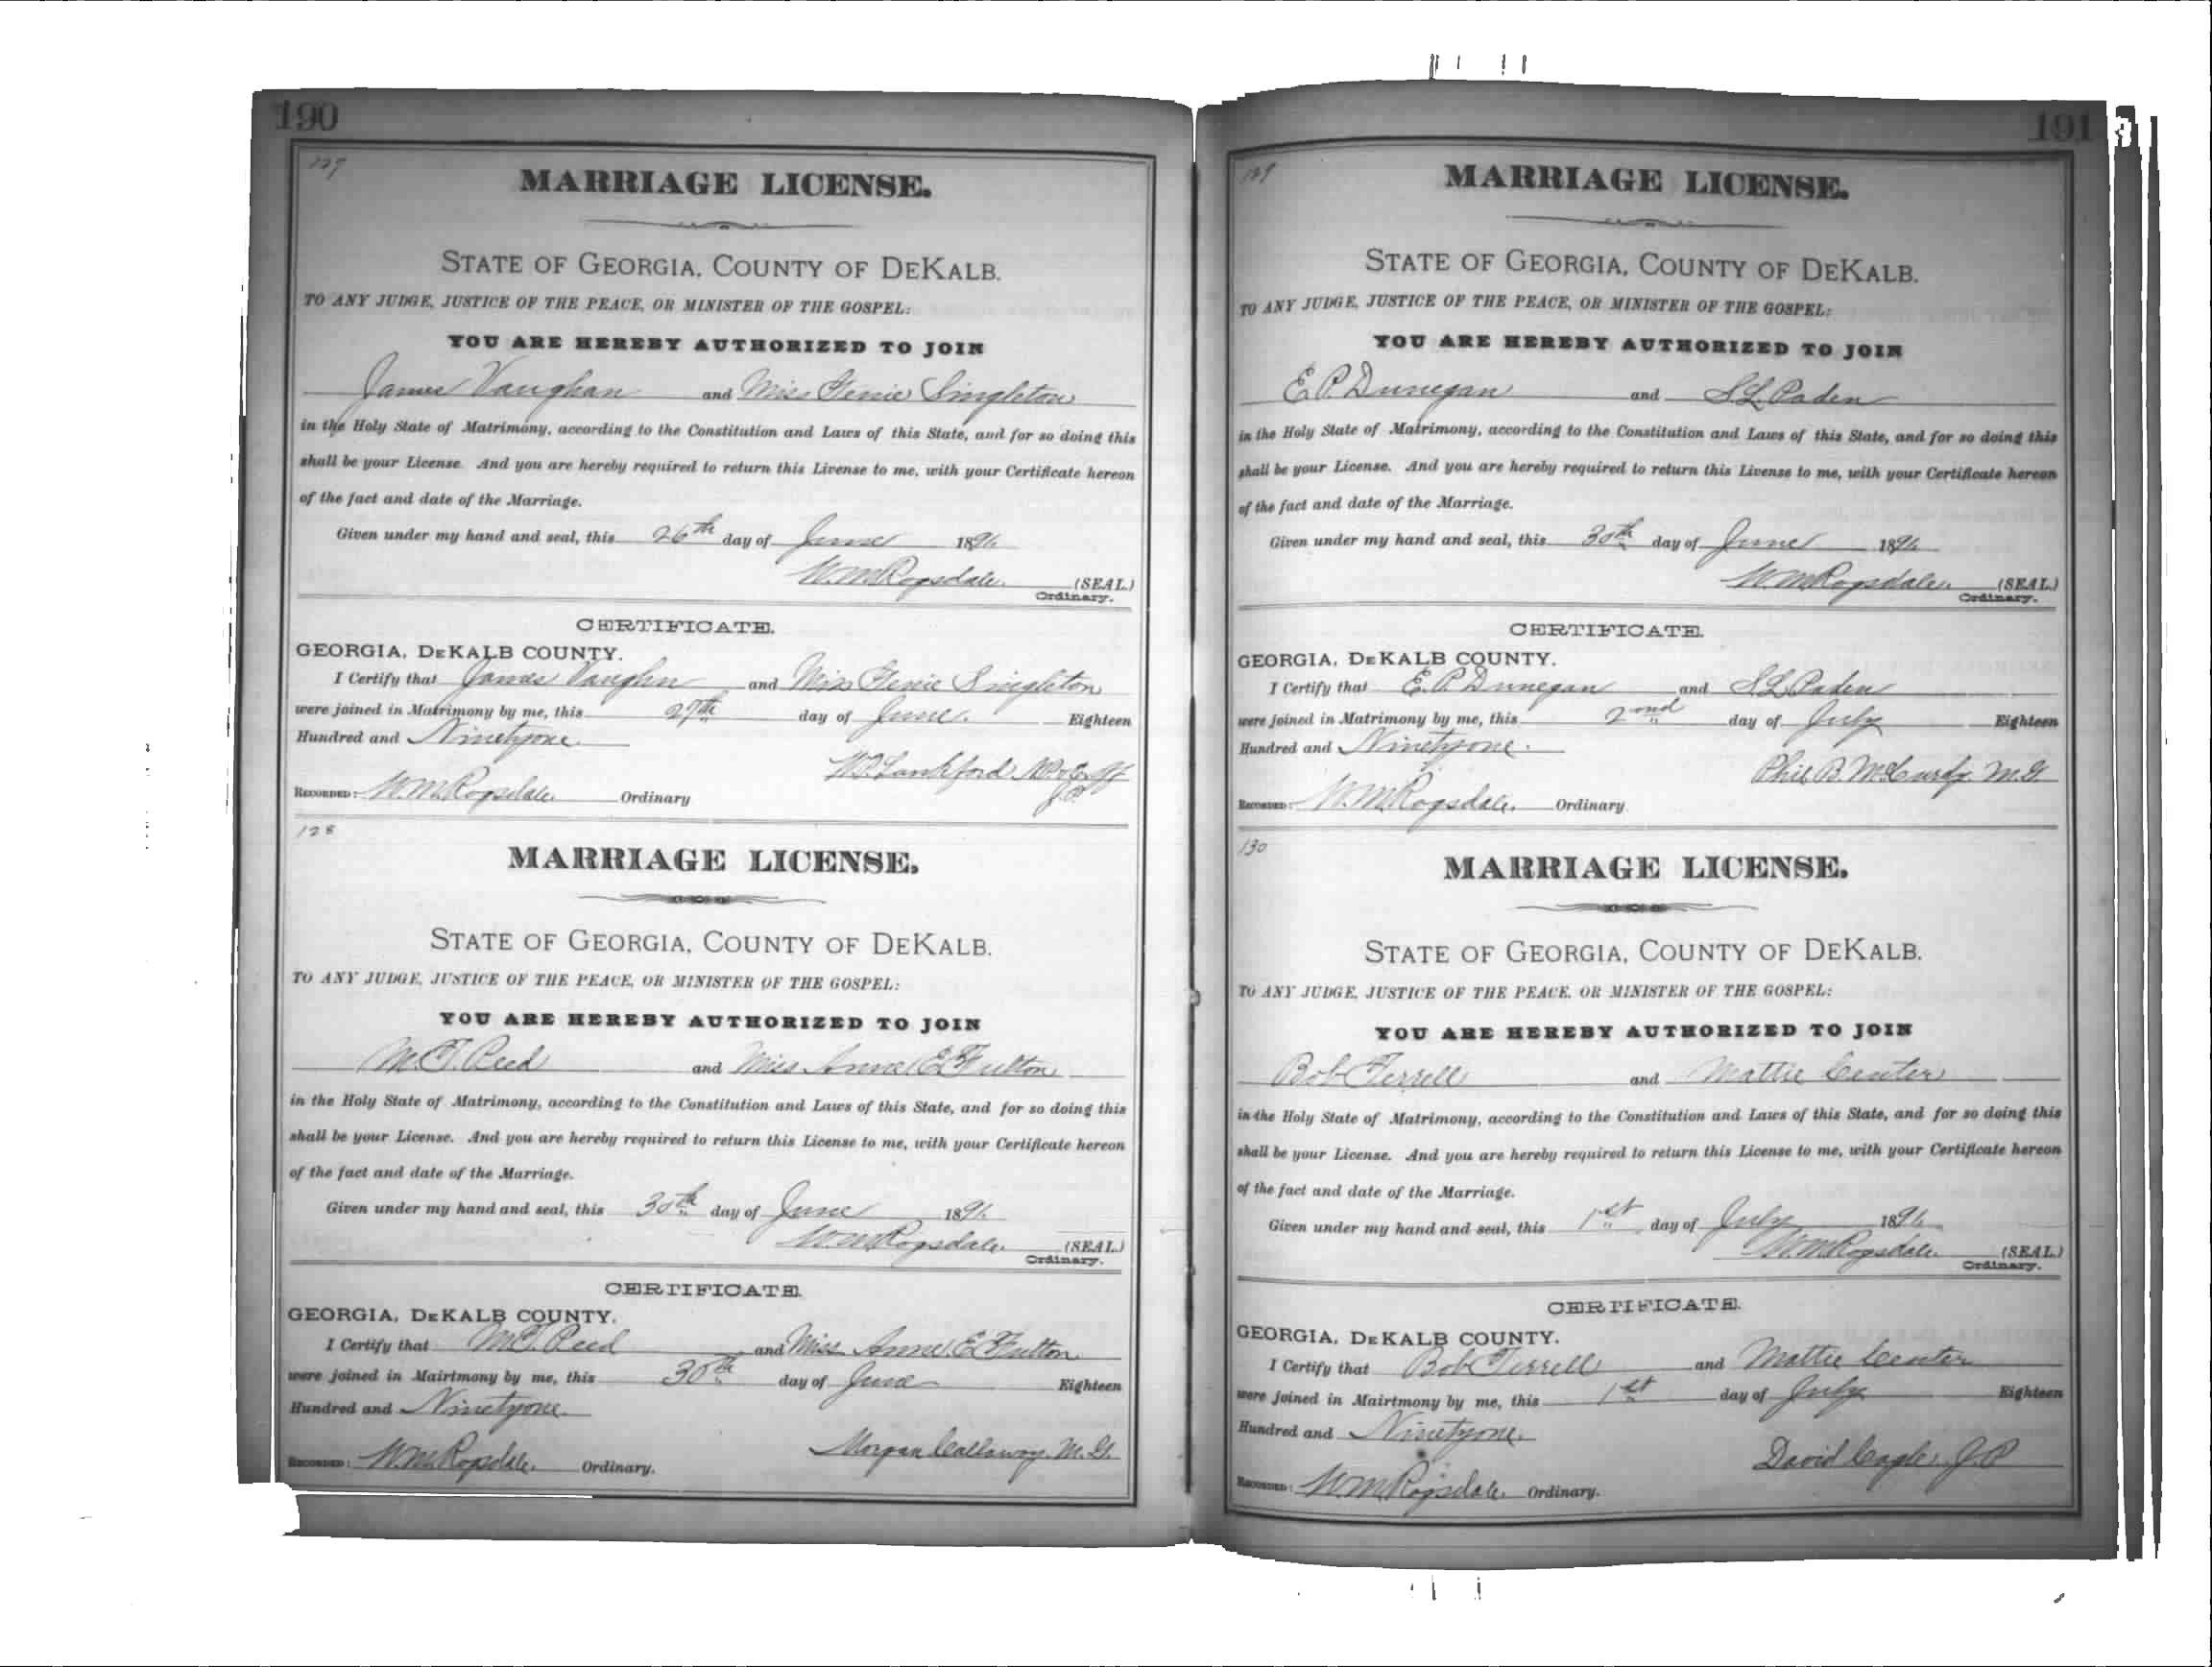 190
127
MARRIAGE LICENSE.
STATE OF GEORGIA, COUNTY OF DEKALB.
TO ANY JUDGE, JUSTICE OF THE PEACE, OR MINISTER OF THE GOSPEL:
YOU ARE HEREBY AUTHORIZED TO JOIN
James Vaughan and Miss Genie Singleton
in the Holy State of Matrimony, according to the Constitution and Laws of this State, and for so doing this
shall be your License. And you are hereby required to return this License to me, with your Certificate hereon
of the fact and date of the Marriage.
Given under my hand and seal, this 26th day of June 1891.
W.M. Ragsdale. (SEAL)
Ordinary.
CERTIFICATE.
GEORGIA, DEKALB COUNTY.
I Certify that James Vaughn and Miss Genie Singleton
were joined in Matrimony by me, this 27th day of June. Eighteen
Hundred and Ninetyone.
W.P. Lankford
RECORDED: W.M. Ragsdale. Ordinary
128
MARRIAGE LICENSE.
STATE OF GEORGIA, COUNTY OF DEKALB.
TO ANY JUDGE, JUSTICE OF THE PEACE, OR MINISTER OF THE GOSPEL:
YOU ARE HEREBY AUTHORIZED TO JOIN
M.T. Reed and Miss Anna E. Fulton
in the Holy State of Matrimony, according to the Constitution and Laws of this State, and for so doing this
shall be your License. And you are hereby required to return this License to me, with your Certificate hereon
of the fact and date of the Marriage.
Given under my hand and seal, this 30th day of June 1891.
W.M. Ragsdale. (SEAL)
Ordinary.
CERTIFICATE.
GEORGIA, DEKALB COUNTY.
I Certify that M.T. Reed and Miss Anna E. Fulton
were joined in Mairtmony by me, this 30th day of June Eighteen
Hundred and Ninetyone.
Morgan Callaway. M.G.
RECORDED: W.M. Ragsdale. Ordinary.
191
129
MARRIAGE LICENSE.
STATE OF GEORGIA, COUNTY OF DEKALB.
TO ANY JUDGE, JUSTICE OF THE PEACE, OR MINISTER OF THE GOSPEL:
YOU ARE HEREBY AUTHORIZED TO JOIN
E.P. Dunegan and S.L. Paden
in the Holy State of Matrimony, according to the Constitution and Laws of this State, and for so doing this
shall be your License. And you are hereby required to return this License to me, with your Certificate hereon
of the fact and date of the Marriage.
Given under my hand and seal, this 30th day of June 1891.
W.M. Ragsdale. (SEAL)
Ordinary.
CERTIFICATE.
GEORGIA, DEKALB COUNTY.
I Certify that E.P. Dunegan and S.L. Paden
were joined in Matrimony by me, this 2nd day of July Eighteen
Hundred and Ninetyone.
Phil B. McCurdy M.G
RECORDED: W.M. Ragsdale. Ordinary.
130
MARRIAGE LICENSE.
STATE OF GEORGIA, COUNTY OF DEKALB.
TO ANY JUDGE, JUSTICE OF THE PEACE, OR MINISTER OF THE GOSPEL:
YOU ARE HEREBY AUTHORIZED TO JOIN
Bob Terrell and Mattie Center
in the Holy State of Matrimony, according to the Constitution and Laws of this State, and for so doing this
shall be your License. And you are hereby required to return this License to me, with your Certificate hereon
of the fact and date of the Marriage.
Given under my hand and seal, this 1st day of July 1891.
W.M. Ragsdale. (SEAL)
Ordinary.
CERTIFICATE.
GEORGIA, DEKALB COUNTY.
I Certify that Bob Terrell and Mattie Center
were joined in Mairtmony by me, this 1st day of July Eighteen
Hundred and Ninetyone.
David Cagle. J.P
RECORDED: W.M. Ragsdale. Ordinary.